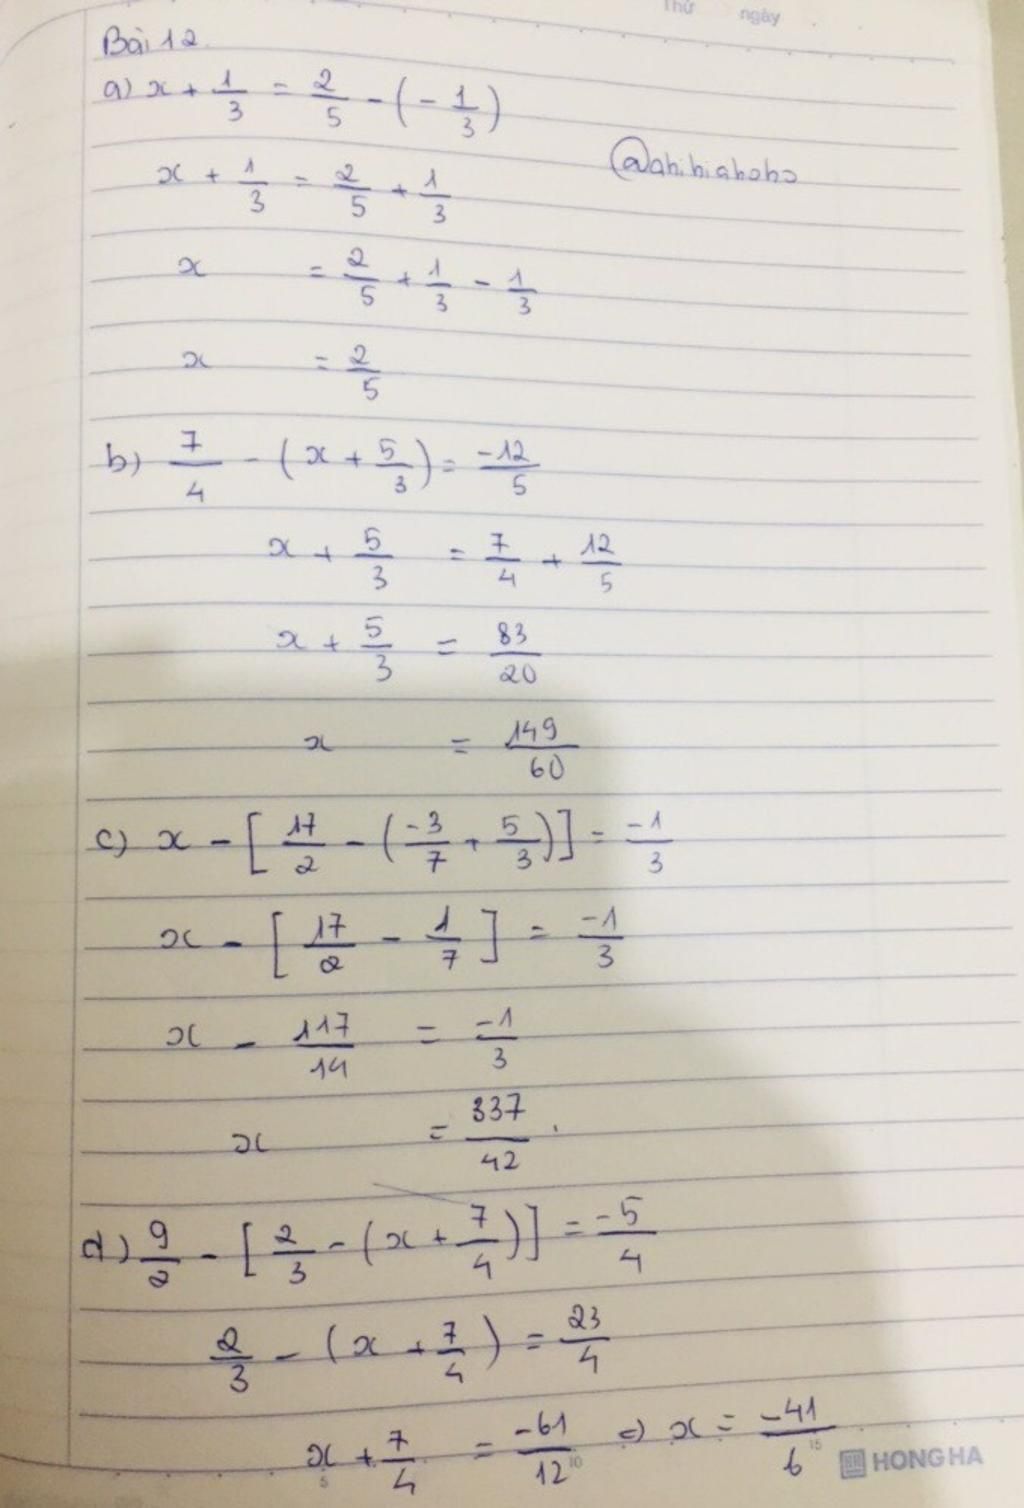 Thứ ngày
Bài 12.
a) x + 1/3 = 2/5 - (- 1/3)
@ahihiahoho
x + 1/3 = 2/5 + 1/3
x = 2/5 + 1/3 - 1/3
x = 2/5
b) 7/4 - (x + 5/3) = -12/5
x + 5/3 = 7/4 + 12/5
x + 5/3 = 83/20
x = 149/60
c) x - [17/2 - (-3/7 + 5/3)] = -1/3
x - [17/2 - 1/7] = -1/3
x - 117/14 = -1/3
x = 337/42.
d) 9/2 - [2/3 - (x + 7/4)] = -5/4
2/3 - (x + 7/4) = 23/4
x + 7/4 = -61/12 => x = -41/6
5 10 15
HONG HA